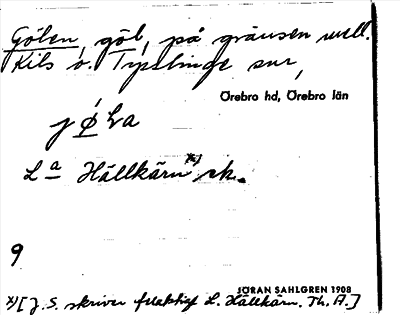 Gölen, göl, på gränsen mell.
Kils o. Tysslinge snr,
Örebro hd, Örebro län
jø̀La
La Hällkärn x) sk.
9
JÖRAN SAHLGREN 1908
x) [J. S. skriver felaktigt L. Hällkärn. Th. A.]